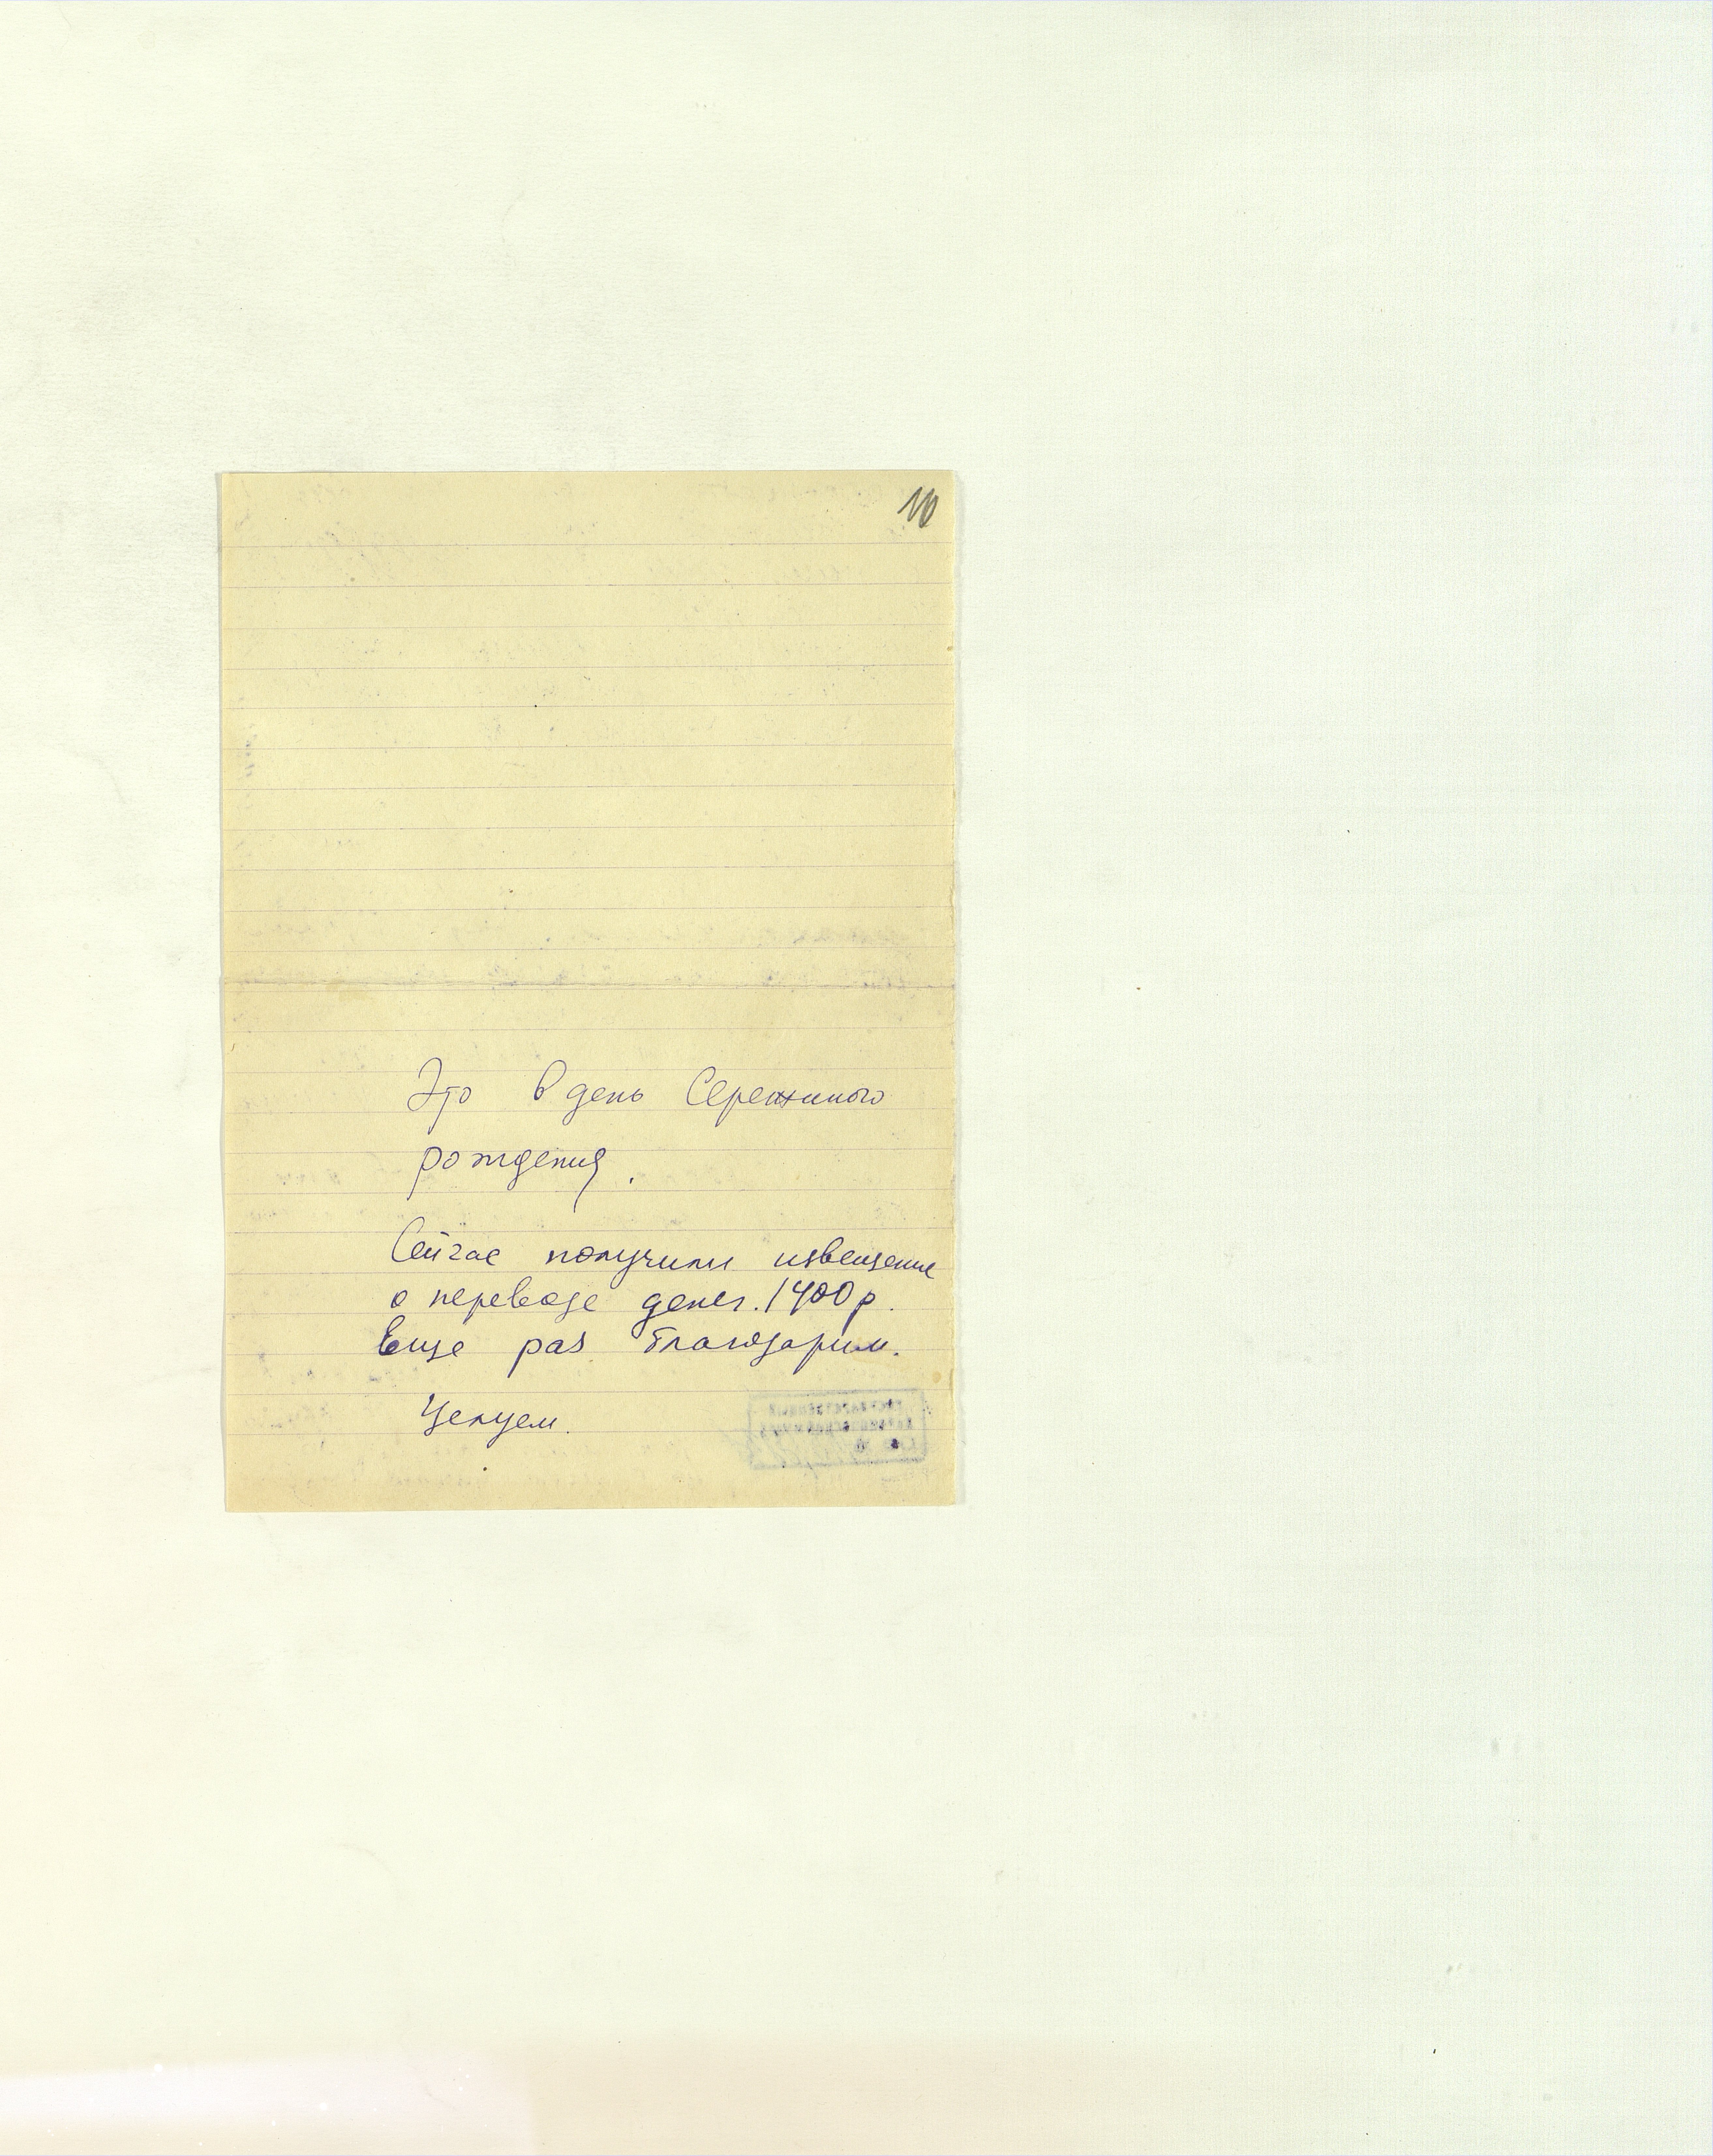 10
Это в день Сережиного
рождения.
Сейчас получили извещение
о переводе денег. 1400 р.
Еще раз благодарим.
Целуем.